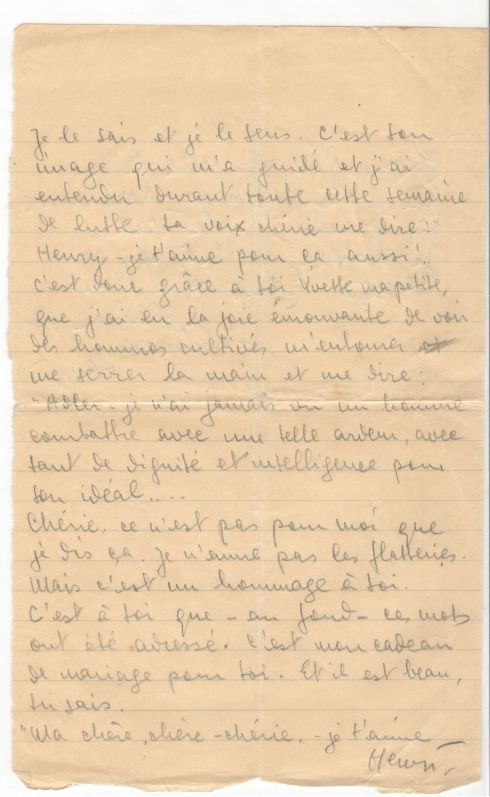 Je le sais et je le sens. C'est ton
image qui m'a guidé et j'ai
entendu durant toute cette semaine
de lutte ta voix chérie me dire:"
Henry - je t'aime pour ça, aussi!
C'est donc grâce à toi Yvette ma petite,
que j'ai eu la joie émouvante de voir
des hommes cultivés m'entourer
me serrer la main et me dire:
"Adler - je n'ai jamais vu un homme
combattre avec une telle ardeur, avec
tant de dignité et intelligence pour
son idéal....
Chérie, ce n'est pas pour moi que
je dis ça. Je n'aime pas les flatteries.
Mais c'est un hommage à toi.
C'est à toi que - au fond - ces mots
ont été adressé. C'est mon cadeau
de mariage pour toi. Et il est beau,
tu sais.
"Ma chère, chère - chérie. - je t'aime
Henri